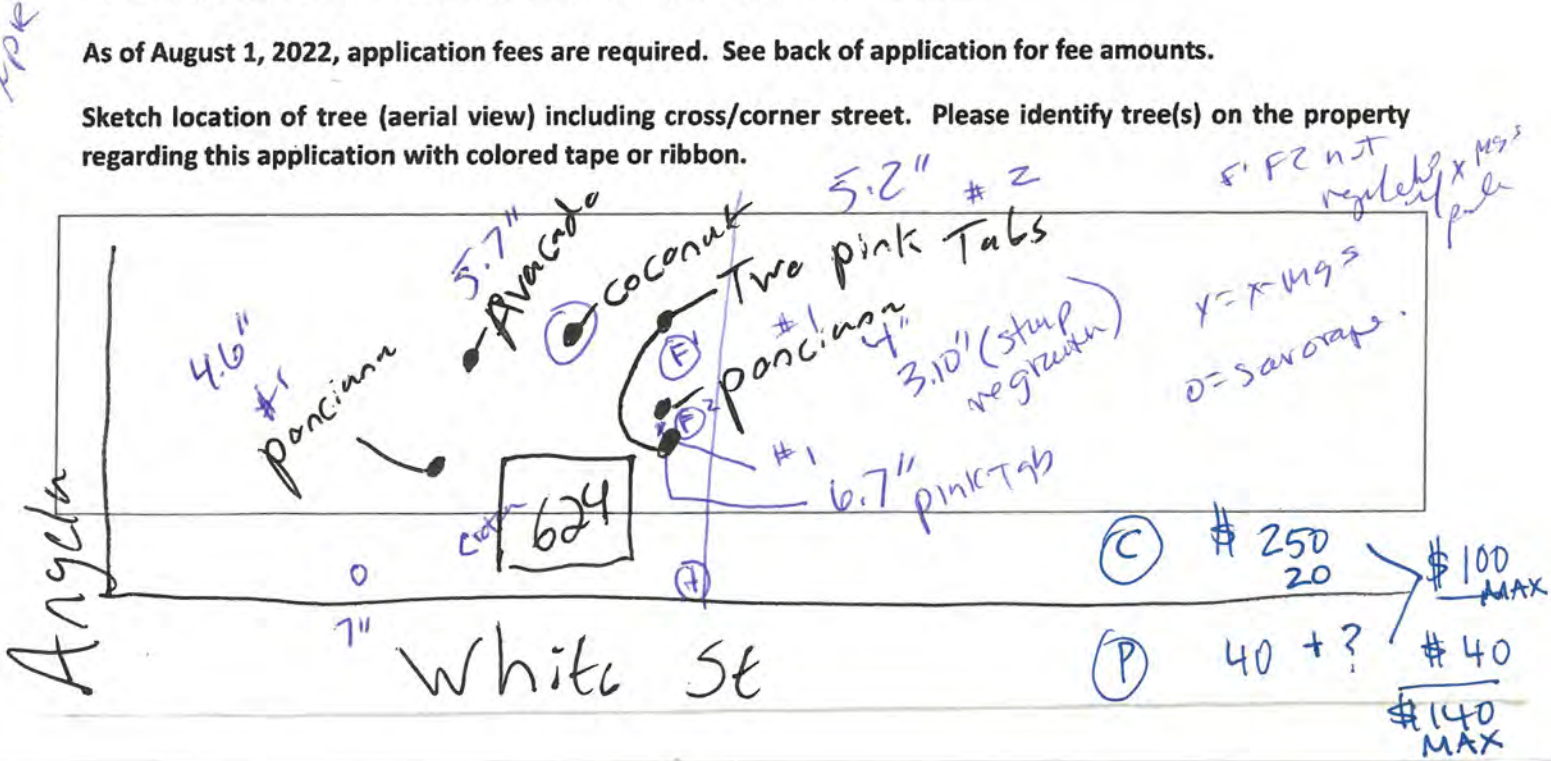 As of August 1, 2022, application fees are required. See back of application for fee amounts.
Sketch location of tree (aerial view) including cross/corner street. Please identify tree(s) on the property
regarding this application with colored tape or ribbon.
5.2" # 2
F2 not
5.7"
Avacado
coconut
Two pink Tabs
4.6"
#1
poncianna
F1
#1
poncianna
4"
3.10" (stump
regrowth)
F2
#1
6.7" pink Tab
624
Angela
0
7"
White St
C $ 250
20
$ 100
MAX
P 40 + ?
$ 40
$ 140
MAX